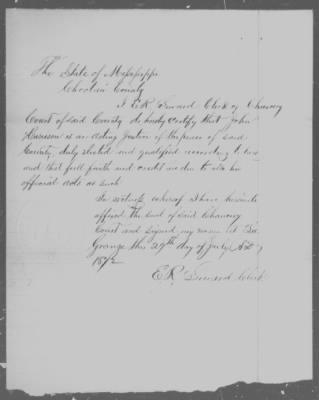 The State of Mississippi
Choctaw County
I E R Seward Clerk of Chancery
Court of said County do hereby certify that John
is an acting Justice of the peace of said
County, duly elected and qualified according to law
and that full faith and credit are due to all his
official acts as such
In witness whereof I have hereunto
affixed the seal of said Chancery
Court and signed my name at La
Grange this 29th day of July A D
1872
E R Seward Clerk